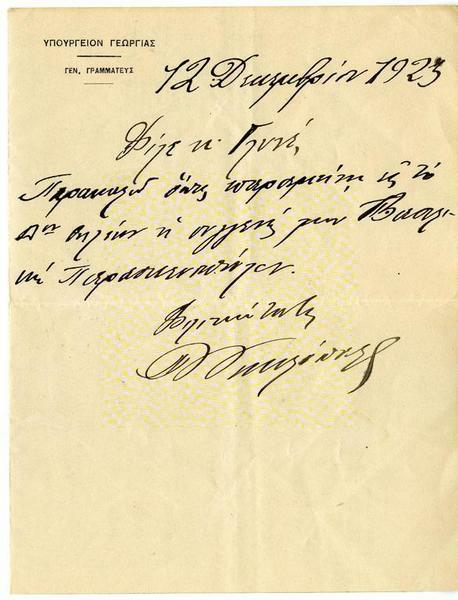 ΥΠΟΥΡΓΕΙΟΝ ΓΕΩΡΓΙΑΣ
ΓΕΝ. ΓΡΑΜΜΑΤΕΥΣ
12 Δεκεμβρίου 1923
Φίλε κ. Γληνέ,
Παρακαλῶ ὅπως παραμείνῃ εἰς τὸ
ἡ συγγενής μου Βασιλι-
κὴ Παρασκευοπούλου.
Φιλικώτατα